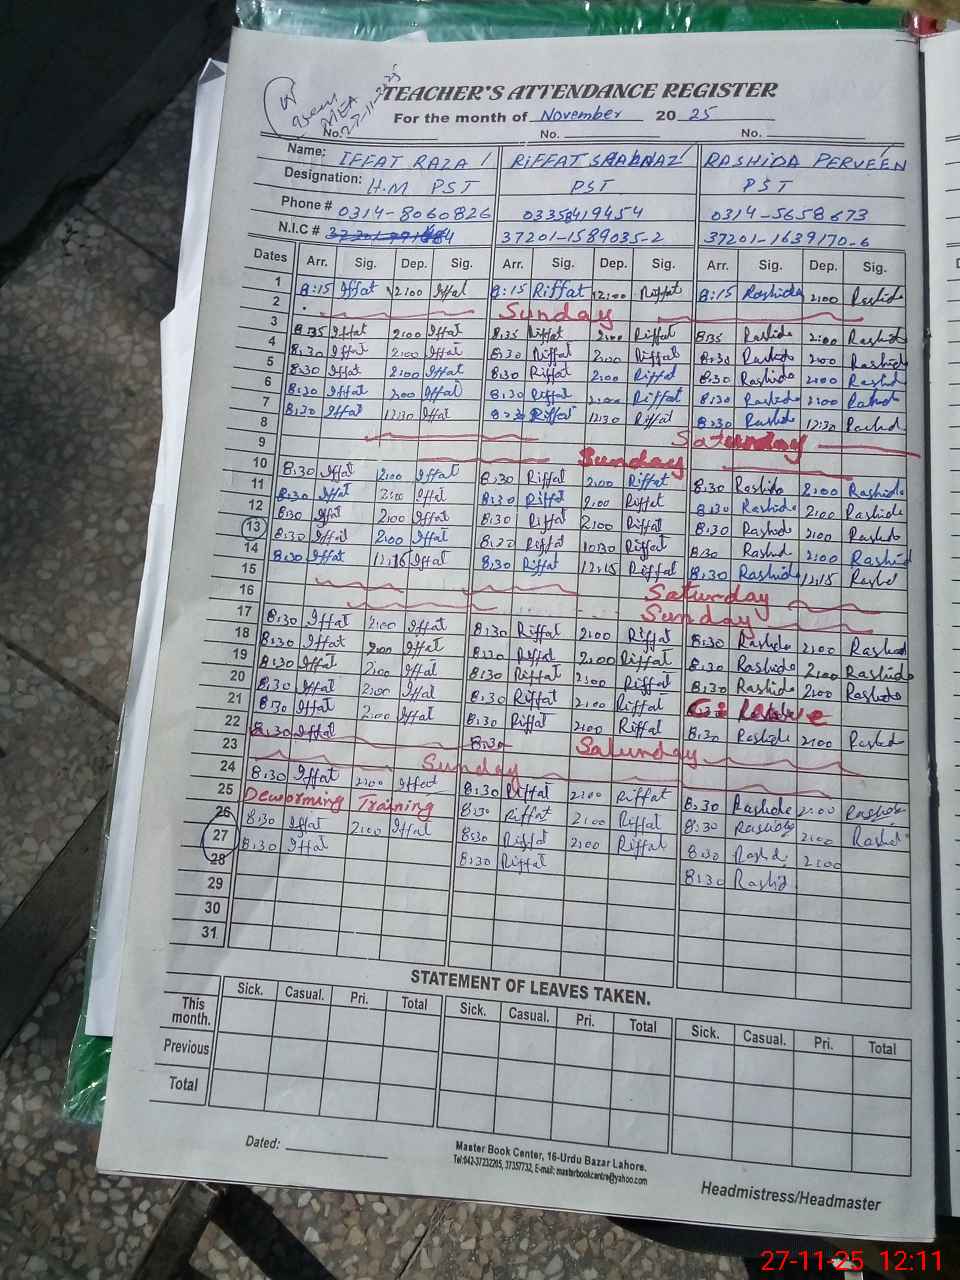 TEACHER'S ATTENDANCE REGISTER
MEA
27-11-25
For the month of November 20 25
No. No. No.
Name: IFFAT RAZA RIFFAT SHAHNAZ RASHIDA PERVEEN
Designation: H.M PST PST PST
Phone # 0314-8060826 03358419454 0314-5658673
N.I.C # 37201-1589035-2 37201-1639170-6
Dates Arr. Sig. Dep. Sig. Arr. Sig. Dep. Sig. Arr. Sig. Dep. Sig.
1 8:15 Iffat 2:00 Iffat 8:15 Riffat 2:00 Riffat 8:15 Rashida 2:00 Rashida
2 Sunday
3 8:35 Iffat 2:00 Iffat 8:35 Riffat 2:00 Riffat 8:35 Rashida 2:00 Rashida
4 8:30 Iffat 2:00 Iffat 8:30 Riffat 2:00 Riffat 8:30 Rashida 2:00 Rashida
5 8:30 Iffat 2:00 Iffat 8:30 Riffat 2:00 Riffat 8:30 Rashida 2:00 Rashida
6 8:30 Iffat 2:00 Iffat 8:30 Riffat 2:00 Riffat 8:30 Rashida 2:00 Rashida
7 8:30 Iffat 12:30 Iffat 8:30 Riffat 12:30 Riffat 8:30 Rashida 12:30 Rashida
8 Saturday
9 Sunday
10 8:30 Iffat 2:00 Iffat 8:30 Riffat 2:00 Riffat 8:30 Rashida 2:00 Rashida
11 8:30 Iffat 2:00 Iffat 8:30 Riffat 2:00 Riffat 8:30 Rashida 2:00 Rashida
12 8:30 Iffat 2:00 Iffat 8:30 Riffat 2:00 Riffat 8:30 Rashida 2:00 Rashida
13 8:30 Iffat 2:00 Iffat 8:30 Riffat 10:30 Riffat 8:30 Rashida 2:00 Rashida
14 8:30 Iffat 12:15 Iffat 8:30 Riffat 12:15 Riffat 8:30 Rashida 12:15 Rashida
15 Saturday
16 Sunday
17 8:30 Iffat 2:00 Iffat 8:30 Riffat 2:00 Riffat 8:30 Rashida 2:00 Rashida
18 8:30 Iffat 2:00 Iffat 8:30 Riffat 2:00 Riffat 8:30 Rashida 2:00 Rashida
19 8:30 Iffat 2:00 Iffat 8:30 Riffat 2:00 Riffat 8:30 Rashida 2:00 Rashida
20 8:30 Iffat 2:00 Iffat 8:30 Riffat 2:00 Riffat
21 8:30 Iffat 2:00 Iffat 8:30 Riffat 2:00 Riffat 8:30 Rashida 2:00 Rashida
22 8:30 Iffat 8:30 Saturday
23 Sunday
24 8:30 Iffat 2:00 Iffat 8:30 Riffat 2:00 Riffat 8:30 Rashida 2:00 Rashida
25 Deworming Training 8:30 Riffat 2:00 Riffat 8:30 Rashida 2:00 Rashida
26 8:30 Iffat 2:00 Iffat 8:30 Riffat 2:00 Riffat 8:30 Rashida 2:00
27 8:30 Iffat 8:30 Riffat 8:30 Rashida
28
29
30
31
STATEMENT OF LEAVES TAKEN.
Sick. Casual. Pri. Total Sick. Casual. Pri. Total Sick. Casual. Pri. Total
This month.
Previous
Total
Dated:
Master Book Center, 16-Urdu Bazar Lahore.
Tel:042-37232205, 37357732, E-mail: masterbookcentre@yahoo.com
Headmistress/Headmaster
27-11-25 12:11